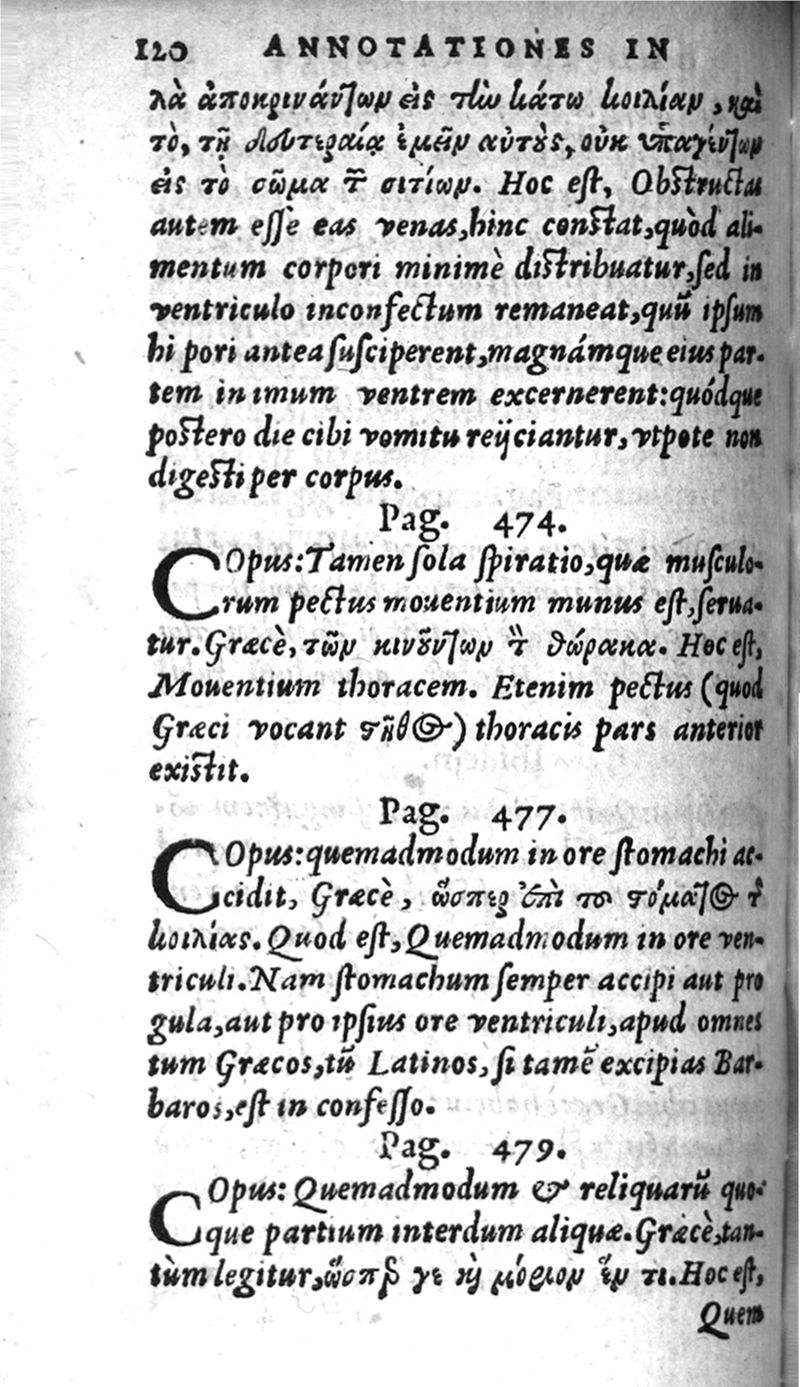 120 ANNOTATIONES IN
λὰ ἀποκρινάντων εἰς τὴν κάτω κοιλίαν, καὶ
τὸ, τῇ δευτεραίᾳ ἐμεῖν αὐτοὺς, οὐκ ὑπαγόντων
εἰς τὸ σῶμα τῶν σιτίων. Hoc est, Obstructas
autem esse eas venas, hinc constat, quòd ali-
mentum corpori minimè distribuatur, sed in
ventriculo inconfectum remaneat, quũ ipsum
hi pori antea susciperent, magnámque eius par-
tem in imum ventrem excernerent: quódque
postero die cibi vomitu reijciantur, vtpote non
digesti per corpus.
Pag. 474.
COpus: Tamen sola spiratio, quæ musculo-
rum pectus mouentium munus est, serua-
tur. Græcè, τῶν κινούντων τὸν θώρακα. Hoc est,
Mouentium thoracem. Etenim pectus (quod
Græci vocant στῆθος) thoracis pars anterior
existit.
Pag. 477.
COpus: quemadmodum in ore stomachi ac-
cidit, Græcè, ὥσπερ ἐπὶ τοῦ στόματος τῆς
κοιλίας. Quod est, Quemadmodum in ore ven-
triculi. Nam stomachum semper accipi aut pro
gula, aut pro ipsius ore ventriculi, apud omnes
tum Græcos, tũ Latinos, si tamẽ excipias Bar-
baros, est in confesso.
Pag. 479.
COpus: Quemadmodum & reliquarũ quo-
que partium interdum aliquæ. Græcè, tan-
tùm legitur, ὥσπερ γε καὶ μόριον ἕν τι. Hoc est,
Quem